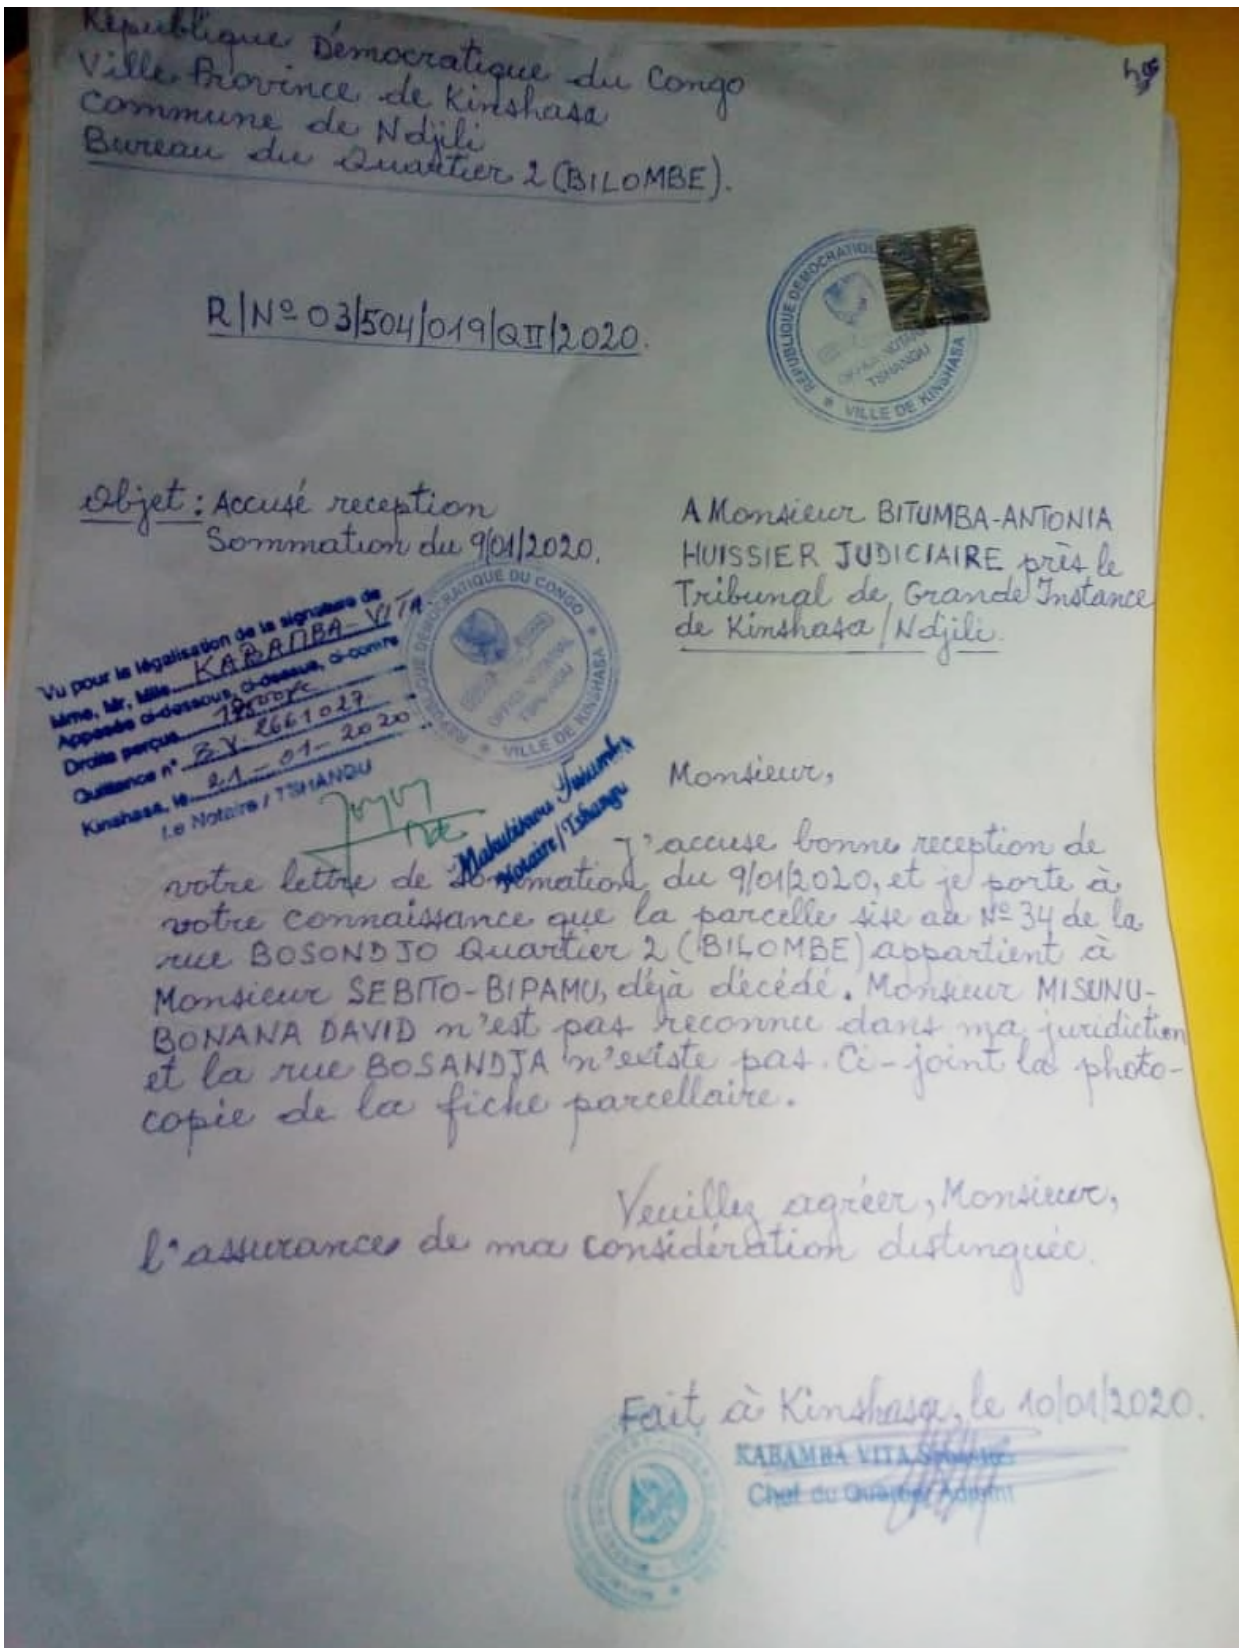 République Démocratique du Congo
Ville Province de Kinshasa
Commune de Ndjili
Bureau du Quartier 2 (BILOMBE).
R/Nº 03/504/019/QII/2020.
RÉPUBLIQUE DÉMOCRATIQUE
TSHANGU
VILLE DE KINSHASA
Objet : Accusé reception
Sommation du 9/01/2020.
A Monsieur BITUMBA-ANTONIA
HUISSIER JUDICIAIRE près le
Tribunal de Grande Instance
de Kinshasa/Ndjili.
Vu pour la légalisation de la signature de
Mme, Mr, Mlle KABAMBA-VITA
Apposée ci-dessous, ci-dessus, ci-contre
Droits perçus
Quittance nº B.V. 2661027
Kinshasa, le 21-01-2020
Le Notaire / TSHANGU
RÉPUBLIQUE DÉMOCRATIQUE DU CONGO
OFFICE NOTARIAL
TSHANGU
VILLE DE KINSHASA
Notaire/Tshangu
Monsieur,
J'accuse bonne reception de
votre lettre de sommation du 9/01/2020, et je porte à
votre connaissance que la parcelle sise au Nº 34 de la
rue BOSONDJO Quartier 2 (BILOMBE) appartient à
Monsieur SEBITO-BIPAMU, déjà décédé. Monsieur MISUNU-
BONANA DAVID n'est pas reconnu dans ma juridiction
et la rue BOSANDJA n'existe pas. Ci-joint la photo-
copie de la fiche parcellaire.
Veuillez agréer, Monsieur,
l'assurance de ma considération distinguée.
Fait à Kinshasa, le 10/01/2020.
KABAMBA VITA
Chef du Quartier Adjoint